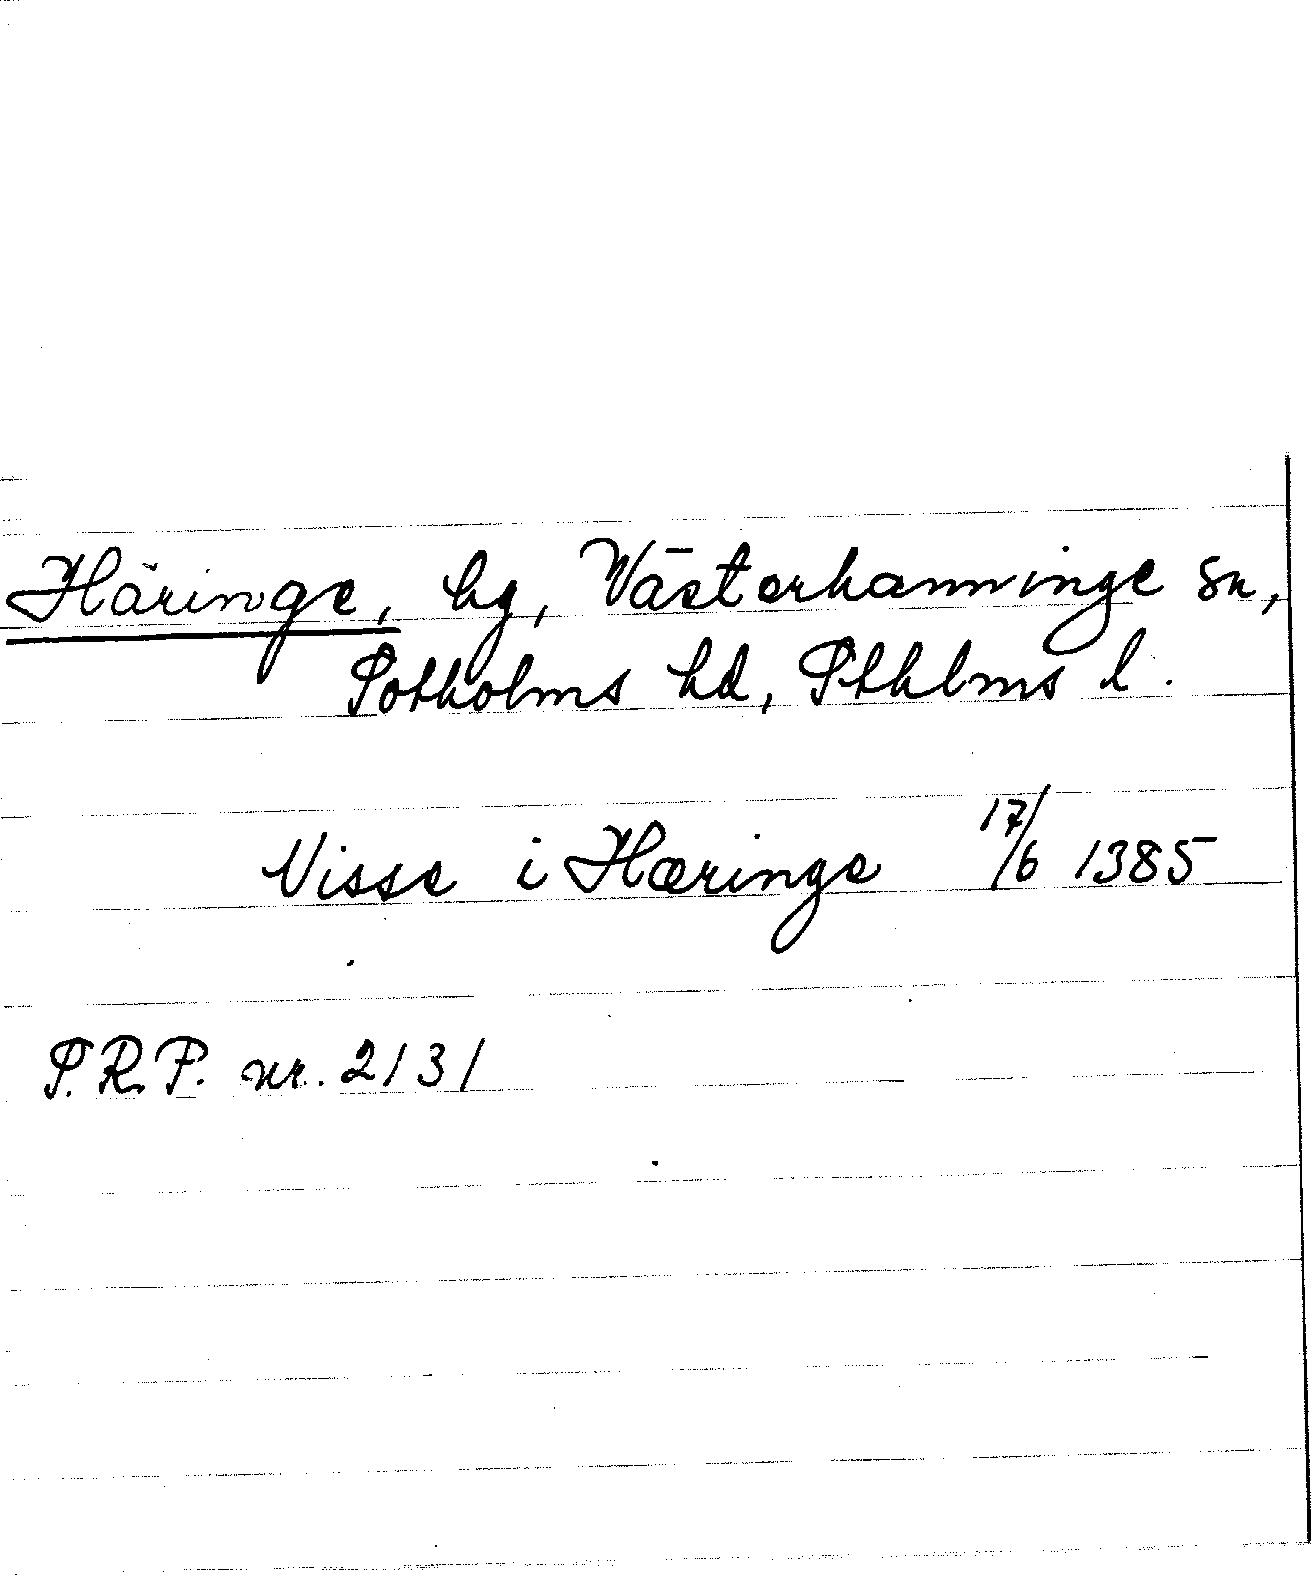 Häringe, hg, Västerhanninge sn,
Sotholms hd, Sthlms l.
Nisse i Hæringe 17/6 1385
S.R.P. nr. 2131